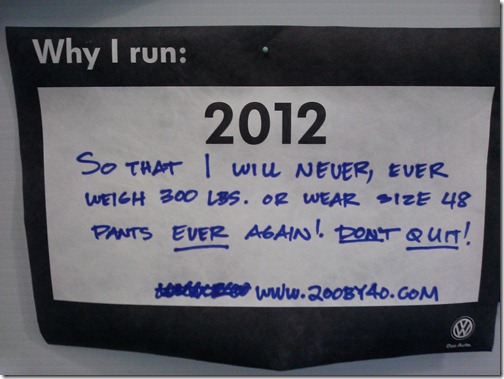 Why I run:
2012
SO THAT I WILL NEVER, EVER
WEIGH 300 LBS. OR WEAR SIZE 48
PANTS EVER AGAIN! DON'T QUIT!
WWW.200BY40.COM
Das Auto.